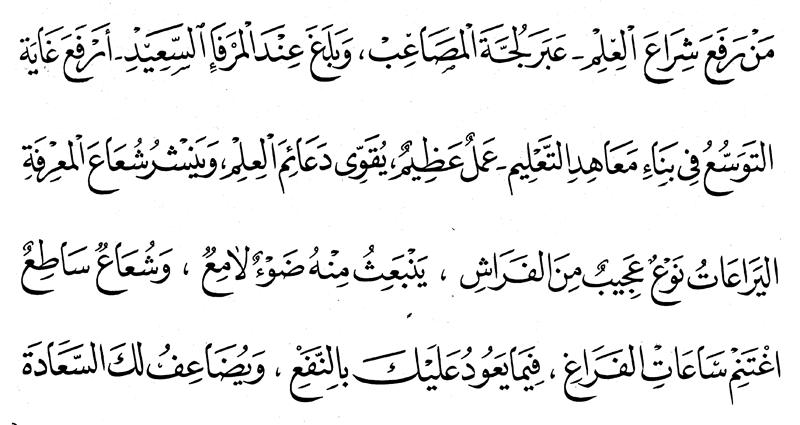 مَنْ رَفَعَ شِرَاعَ الْعِلْمِ - عَبَرَ لُجَّةَ الْمَصَاعِبْ، وَبَلَغَ عِنْدَ الْمَرْفَإِ السَّعِيْدِ - أَرْفَعَ غَايَة
التَوَسُّعُ فِي بِنَاءِ مَعَاهِدِ التَّعْلِيم - عَمَلٌ عَظِيمٌ، يُقَوِّى دَعَائِمَ الْعِلِمْ، وَيَنْشرُ شُعَاعَ الْمَعْرِفَةِ
اليَرَاعَاتُ نَوْعٌ عَجِيبٌ مِنَ الفَرَاشِ ، يَنْبَعِثُ مِنْهُ ضَوْءٌ لامِعٌ ، وَشُعَاعٌ سَاطِعٌ
اغْتَنِمْ سَاعَاتِ الفَرَاغِ ، فِيمَا يَعُودُ عَلَيْكَ بالِنَّفَعْ ، وَيُضَاعِفُ لكَ السَّعَادَة